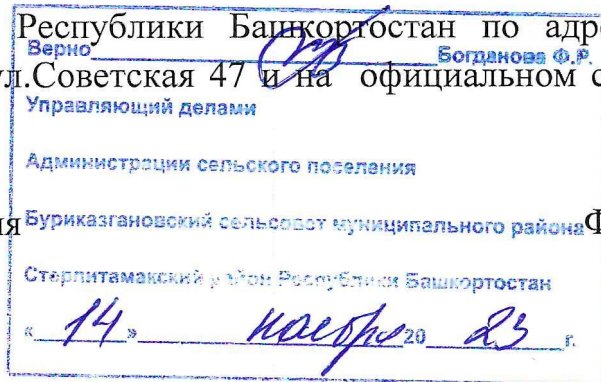 Республики Башкортостан по адр
Верно Богданова Ф.Р.
ул.Советская 47 и на официальном с
Управляющий делами
Администрации сельского поселения
ия Буриказгановский сельсовет муниципального района Ф
Стерлитамакский район Республики Башкортостан
« 14 » ноября 20 23 г.